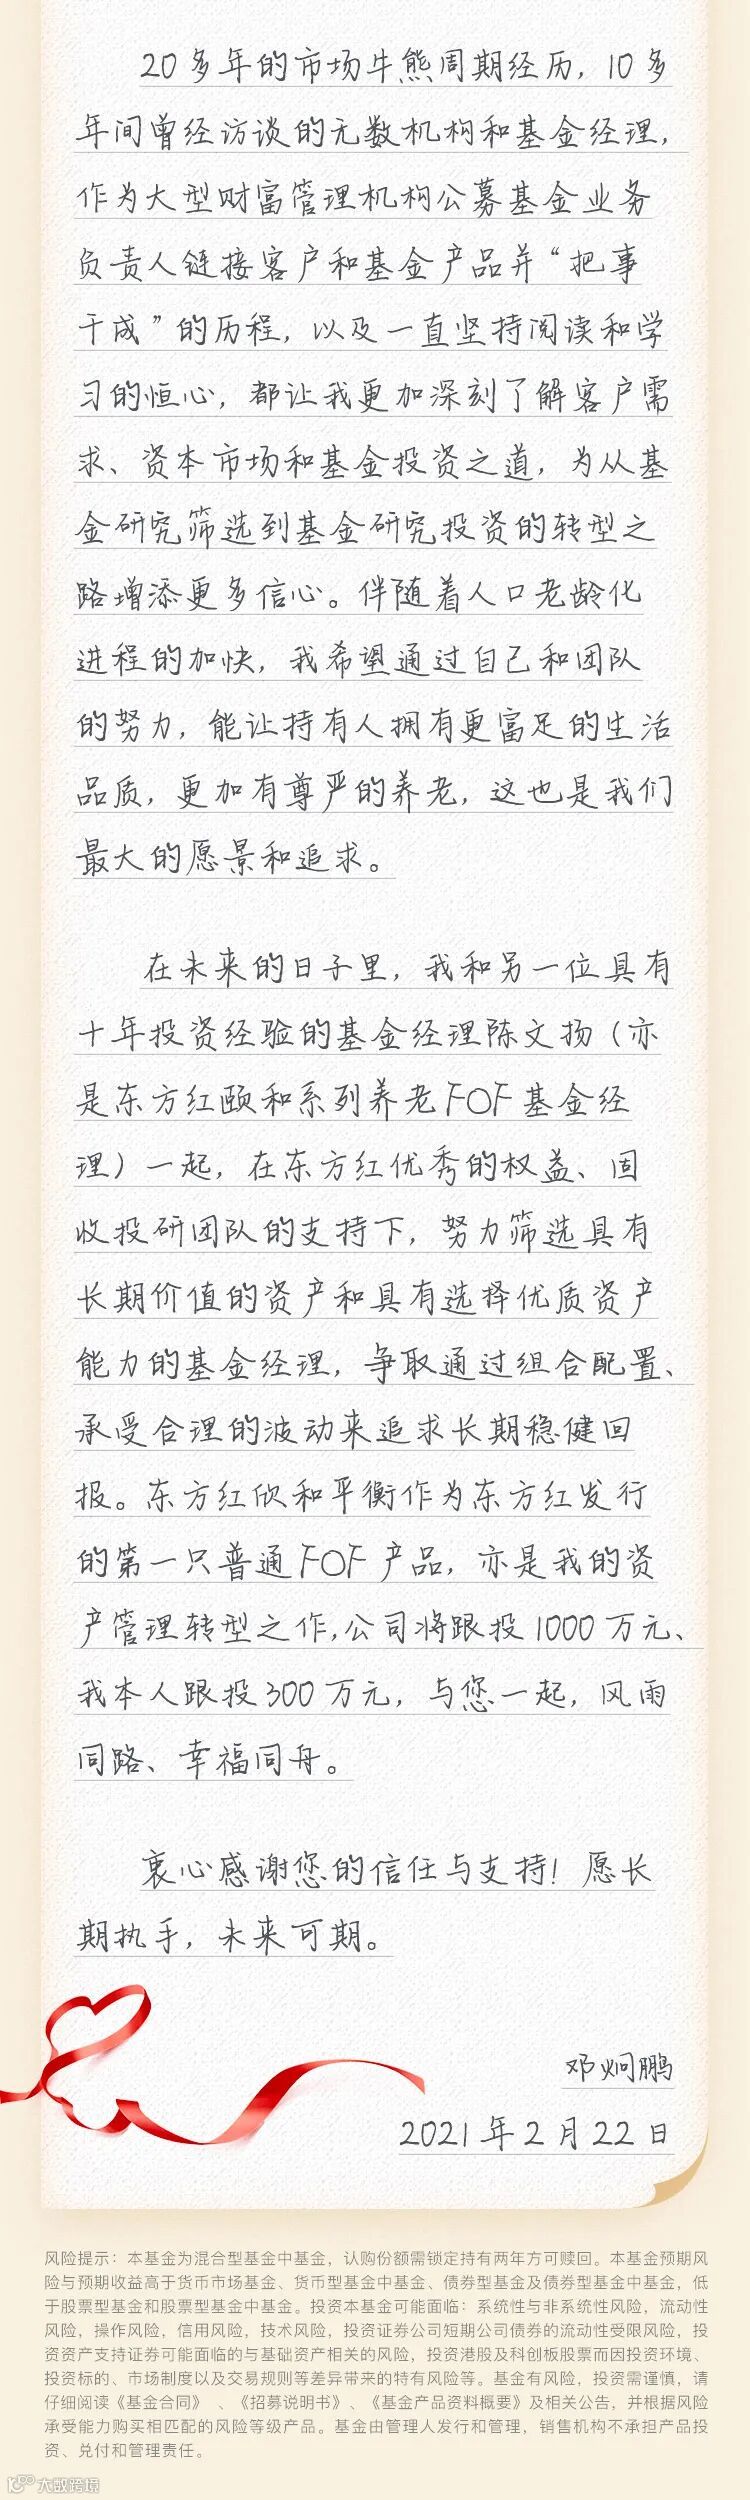 20多年的市场牛熊周期经历，10多
年间曾经访谈的无数机构和基金经理，
作为大型财富管理机构公募基金业务
负责人链接客户和基金产品并“把事
干成”的历程，以及一直坚持阅读和学
习的恒心，都让我更加深刻了解客户需
求、资本市场和基金投资之道，为从基
金研究筛选到基金研究投资的转型之
路增添更多信心。伴随着人口老龄化
进程的加快，我希望通过自己和团队
的努力，能让持有人拥有更富足的生活
品质，更加有尊严的养老，这也是我们
最大的愿景和追求。
在未来的日子里，我和另一位具有
十年投资经验的基金经理陈文扬（亦
是东方红颐和系列养老FOF基金经
理）一起，在东方红优秀的权益、固
收投研团队的支持下，努力筛选具有
长期价值的资产和具有选择优质资产
能力的基金经理，争取通过组合配置、
承受合理的波动来追求长期稳健回
报。东方红欣和平衡作为东方红发行
的第一只普通FOF产品，亦是我的资
产管理转型之作，公司将跟投1000万元、
我本人跟投300万元，与您一起，风雨
同路、幸福同舟。
衷心感谢您的信任与支持！愿长
期执手，未来可期。
邓炯鹏
2021年2月22日
风险提示：本基金为混合型基金中基金，认购份额需锁定持有两年方可赎回。本基金预期风
险与预期收益高于货币市场基金、货币型基金中基金、债券型基金及债券型基金中基金，低
于股票型基金和股票型基金中基金。投资本基金可能面临：系统性与非系统性风险，流动性
风险，操作风险，信用风险，技术风险，投资证券公司短期公司债券的流动性受限风险，投
资资产支持证券可能面临的与基础资产相关的风险，投资港股及科创板股票而因投资环境、
投资标的、市场制度以及交易规则等差异带来的特有风险等。基金有风险，投资需谨慎，请
仔细阅读《基金合同》、《招募说明书》、《基金产品资料概要》及相关公告，并根据风险
承受能力购买相匹配的风险等级产品。基金由管理人发行和管理，销售机构不承担产品投
资、兑付和管理责任。
大数跨境